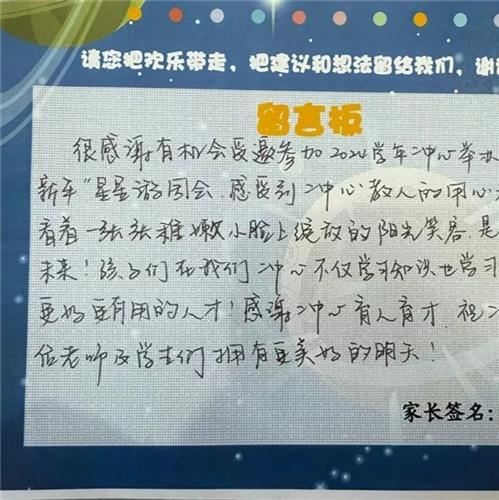 请您把欢乐带走，把建议和想法留给我们，谢
留言板
很感谢有机会受邀参加2024学年冲心举办
新年"星星游园会，感受到冲心教人的用心
看着一张张稚嫩小脸上绽放的阳光笑容，是
未来！孩子们在我们冲心不仅学习知识也学习
更好更有用的人才！感谢冲心育人育才，祝
位老师及学生们拥有更美好的明天！
家长签名：